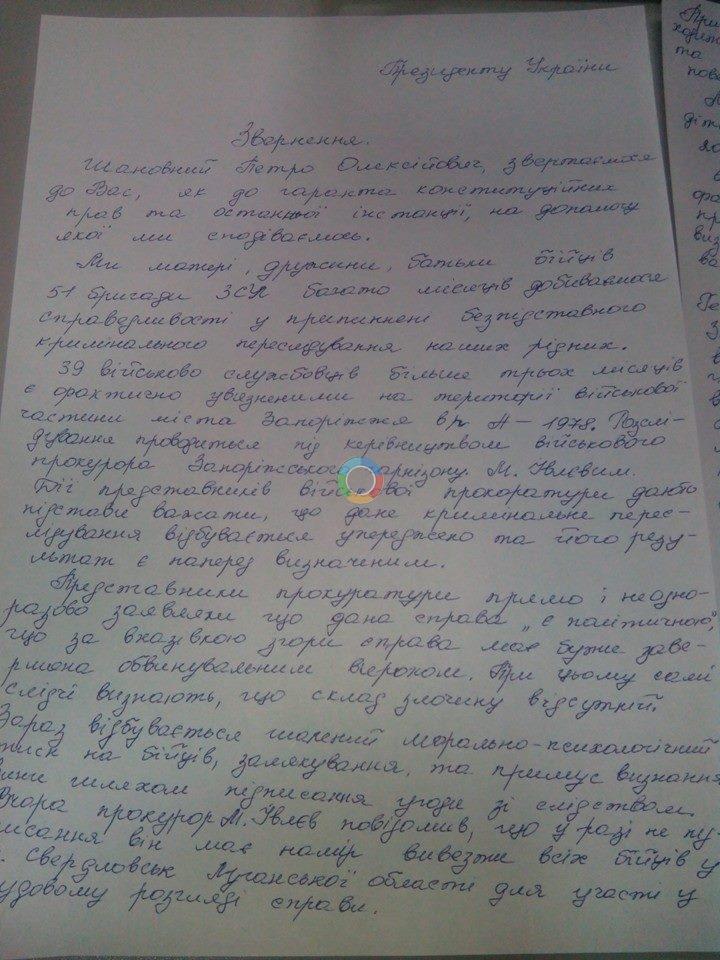 Президенту України
Звернення.
Шановний Петро Олексійович, звертаємося
до Вас, як до гаранта конституційних
прав та останньої інстанції, на допомогу
якої ми сподіваємось.
Ми матері, дружини, батьки бійців
51 бригади ЗСУ багато місяців добиваємося
справедливості у припиннені безпідставного
кримінального переслідування наших рідних.
39 військово службовців більше трьох місяців
є фактично увязненими на території військової
частини міста Запоріжжя А-1978. Розслі-
дування проводиться під керівництвом військового
прокурора Запоріжського гарнізону М. Івлєвим.
Дії представників військової прокоратури дають
підстави важати, що дане кримінальне перес-
лідування відбувається упереджено та його резу-
льтат є наперед визначеним.
Представники прокуратури прямо і неодно-
разово заявляли що дана справа „є політичною",
що за вказівкою згори справа має бути заве-
ршена обвинувальним вироком. При цьому самі
слідчі визнають, що склад злочину відсутній.
Зараз відбувається шалений морально-психологічний
тиск на бійців, залякування, та примус визнання
вини шляхом підписання угоди зі слідством.
Вчора прокурор М. Івлєв повідомив, що у разі не пі-
писання він має намір вивезти всіх бійців у
. Свердловськ Луганської області для участі у
удовому розгляді справи.
При
та
пов
діт